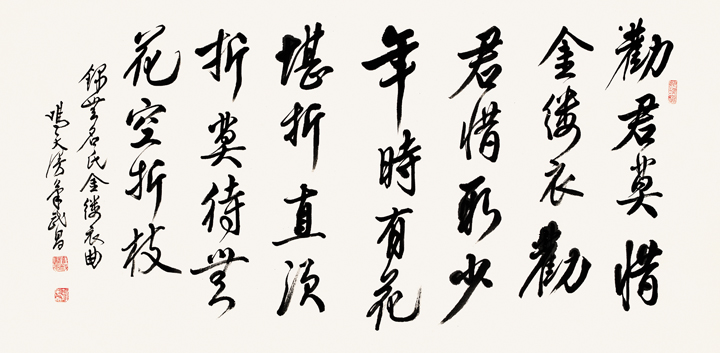 勸君莫惜
金缕衣勸
君惜取少
年時有花
堪折直須
折莫待無
花空折枝
錄無名氏金缕衣曲
武昌